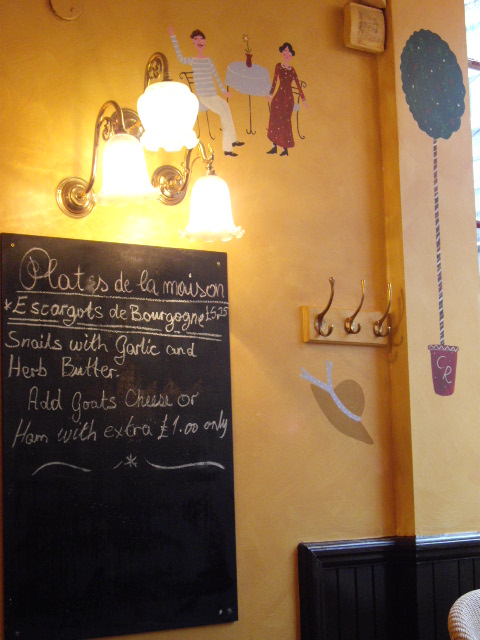 Plat's de la maison
*Escargots de Bourgogne £5,25
Snails with Garlic and
Herb Butter.
Add Goats Cheese or
Ham with extra £1.00 only
CR